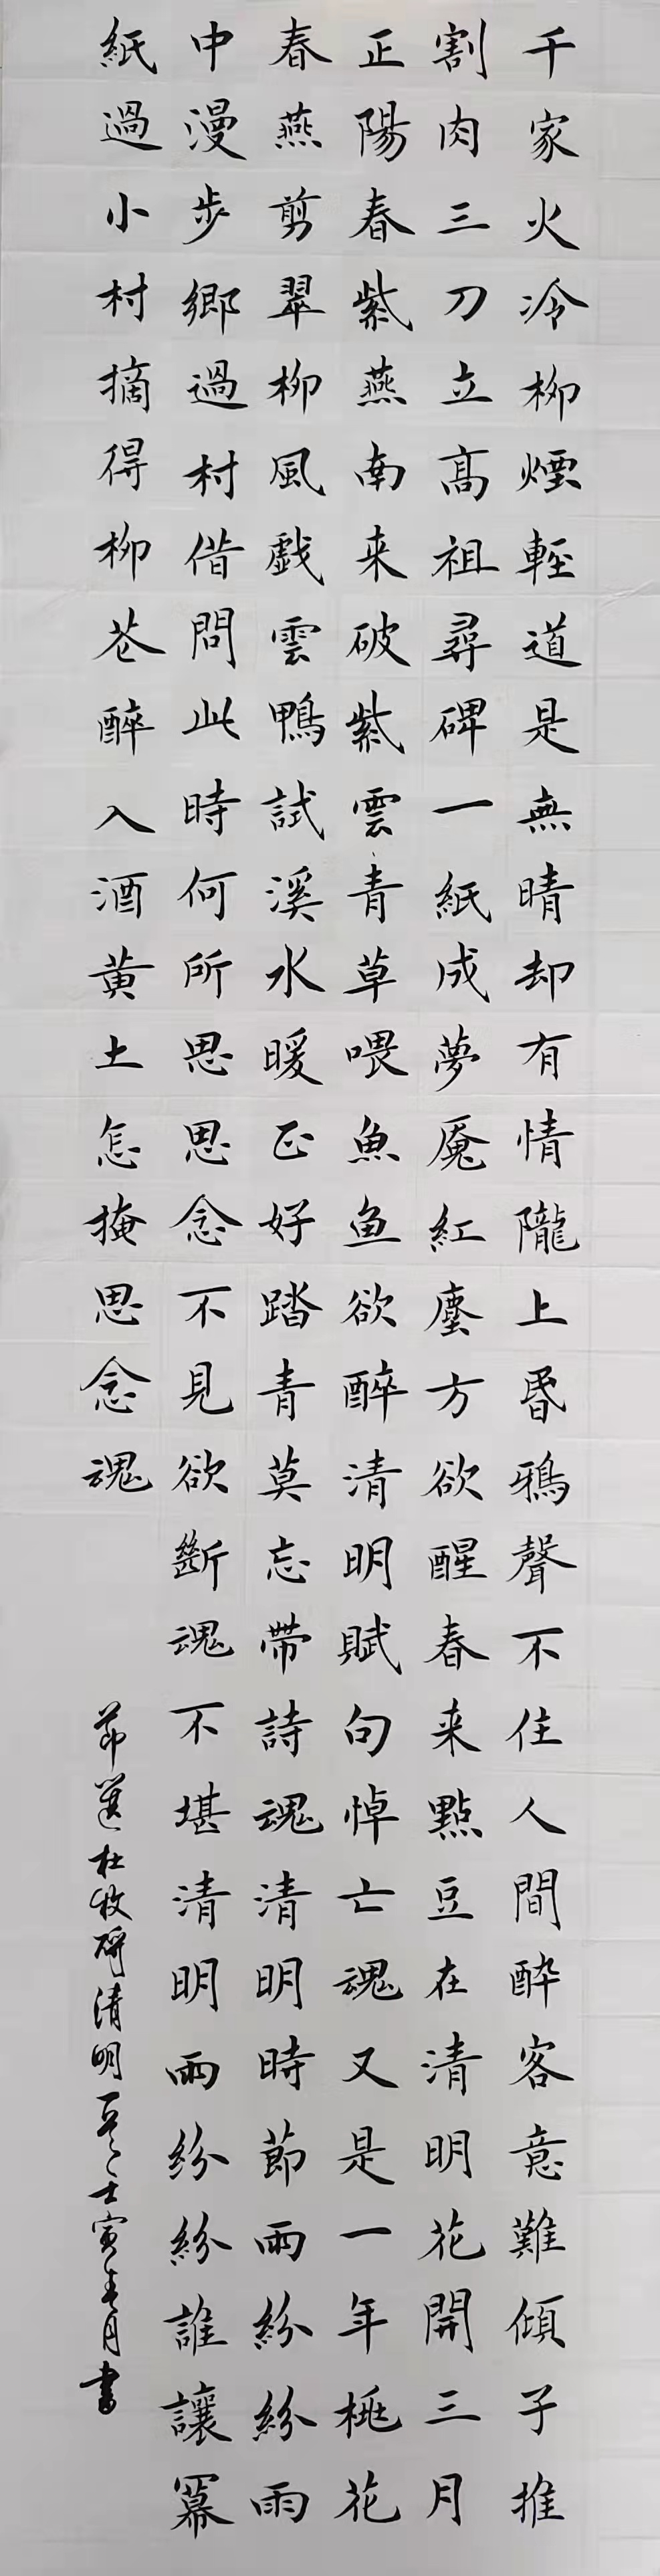 千家火冷柳煙輕道是無晴却有情隴上昏鴉聲不住人間醉客意難傾子推
割肉三刀立高祖尋碑一紙成夢魘紅塵方欲醒春来點豆在清明花開三月
正陽春紫燕南来破紫雲青草喂魚鱼欲醉清明賦句悼亡魂又是一年桃花
春燕剪翠柳風戲雲鴨試溪水暖正好踏青莫忘帶詩魂清明時節雨紛紛雨
中漫步鄉過村借問此時何所思思念不見欲斷魂不堪清明雨紛紛誰讓冪
紙過小村摘得柳芲醉入酒黃土怎掩思念魂
節選杜牧 清明 壬寅春月書